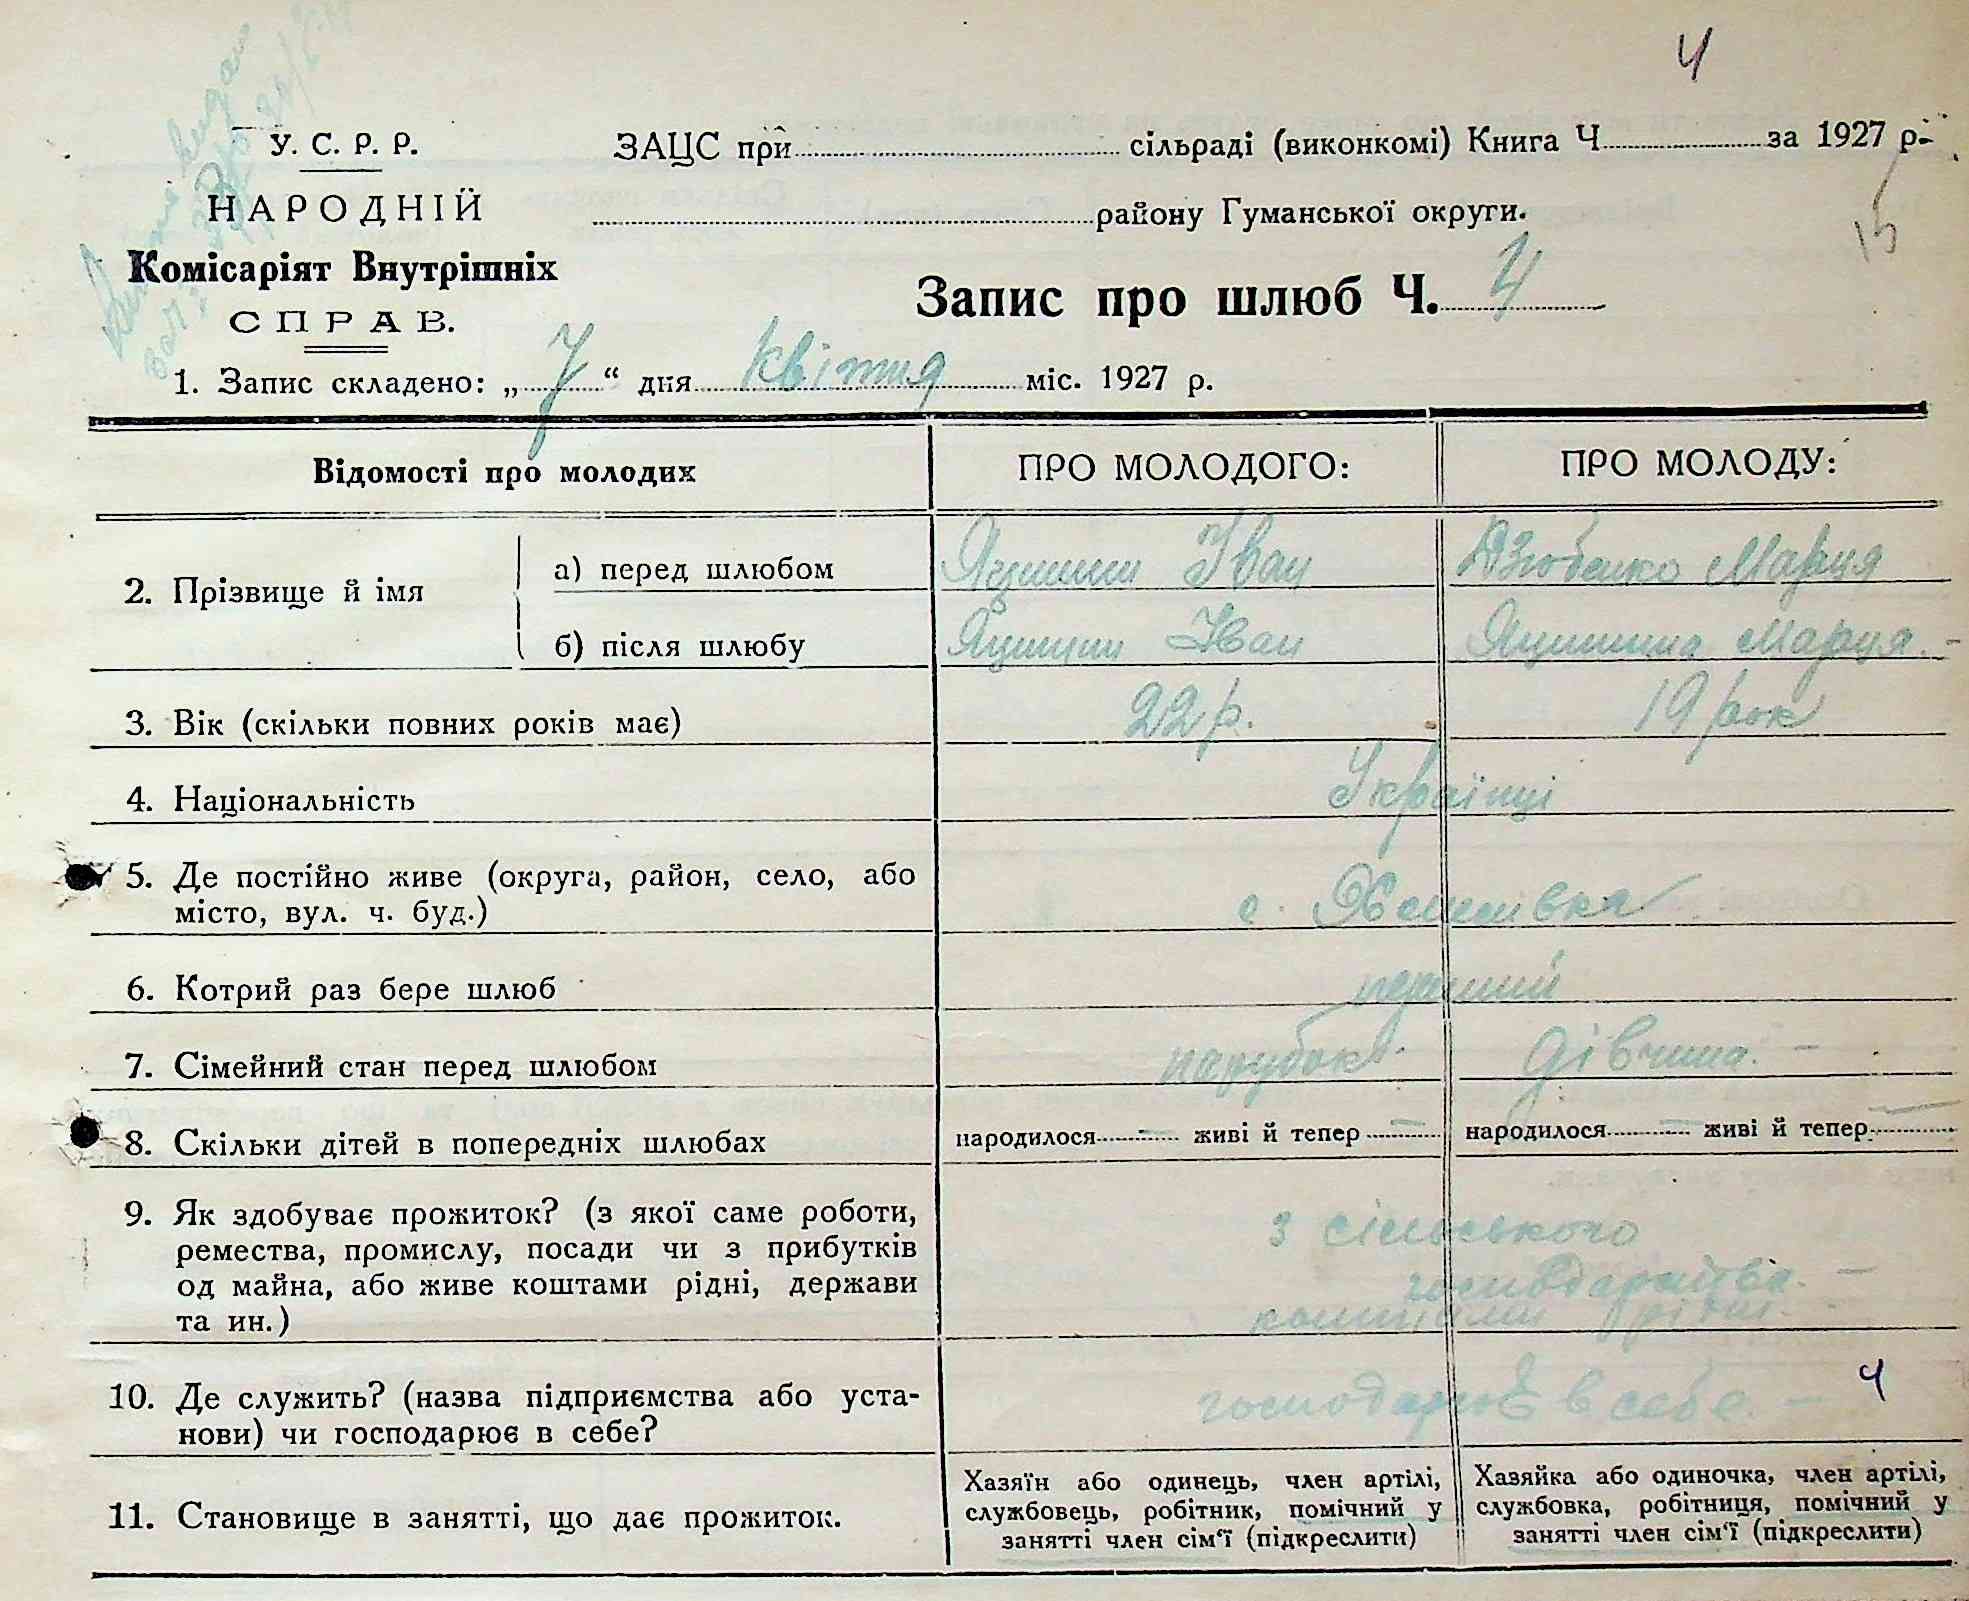 4
У. С. Р. Р.
ЗАЦС при сільраді (виконкомі) Книга Ч за 1927 р.
НАРОДНІЙ
району Гуманської округи.
15
Комісаріят Внутрішніх
СПРАВ.
Запис про шлюб Ч. 4
1. Запис складено: „ 7 “ дня квітня міс. 1927 р.
Відомості про молодих
ПРО МОЛОДОГО:
ПРО МОЛОДУ:
2. Прізвище й імя
а) перед шлюбом
Яцишин Іван
Дзюбенко Марія
б) після шлюбу
Яцишин Іван
Яцишина Марія. -
3. Вік (скільки повних років має)
22 р.
19 рок
4. Національність
Українці
5. Де постійно живе (округа, район, село, або
місто, вул. ч. буд.)
с.
6. Котрий раз бере шлюб
перший
7. Сімейний стан перед шлюбом
парубок.
дівчина. -
8. Скільки дітей в попередніх шлюбах
народилося - живі й тепер -
народилося - живі й тепер -
9. Як здобуває прожиток? (з якої саме роботи,
ремества, промислу, посади чи з прибутків
од майна, або живе коштами рідні, держави
та ин.)
з сільського
господарства. -
коштами рідні. -
10. Де служить? (назва підприємства або уста-
нови) чи господарює в себе?
господарює в себе. -
4
11. Становище в занятті, що дає прожиток.
Хазяїн або одинець, член артілі,
службовець, робітник, помічний у
занятті член сім‘ї (підкреслити)
Хазяйка або одиночка, член артілі,
службовка, робітниця, помічний у
занятті член сім‘ї (підкреслити)